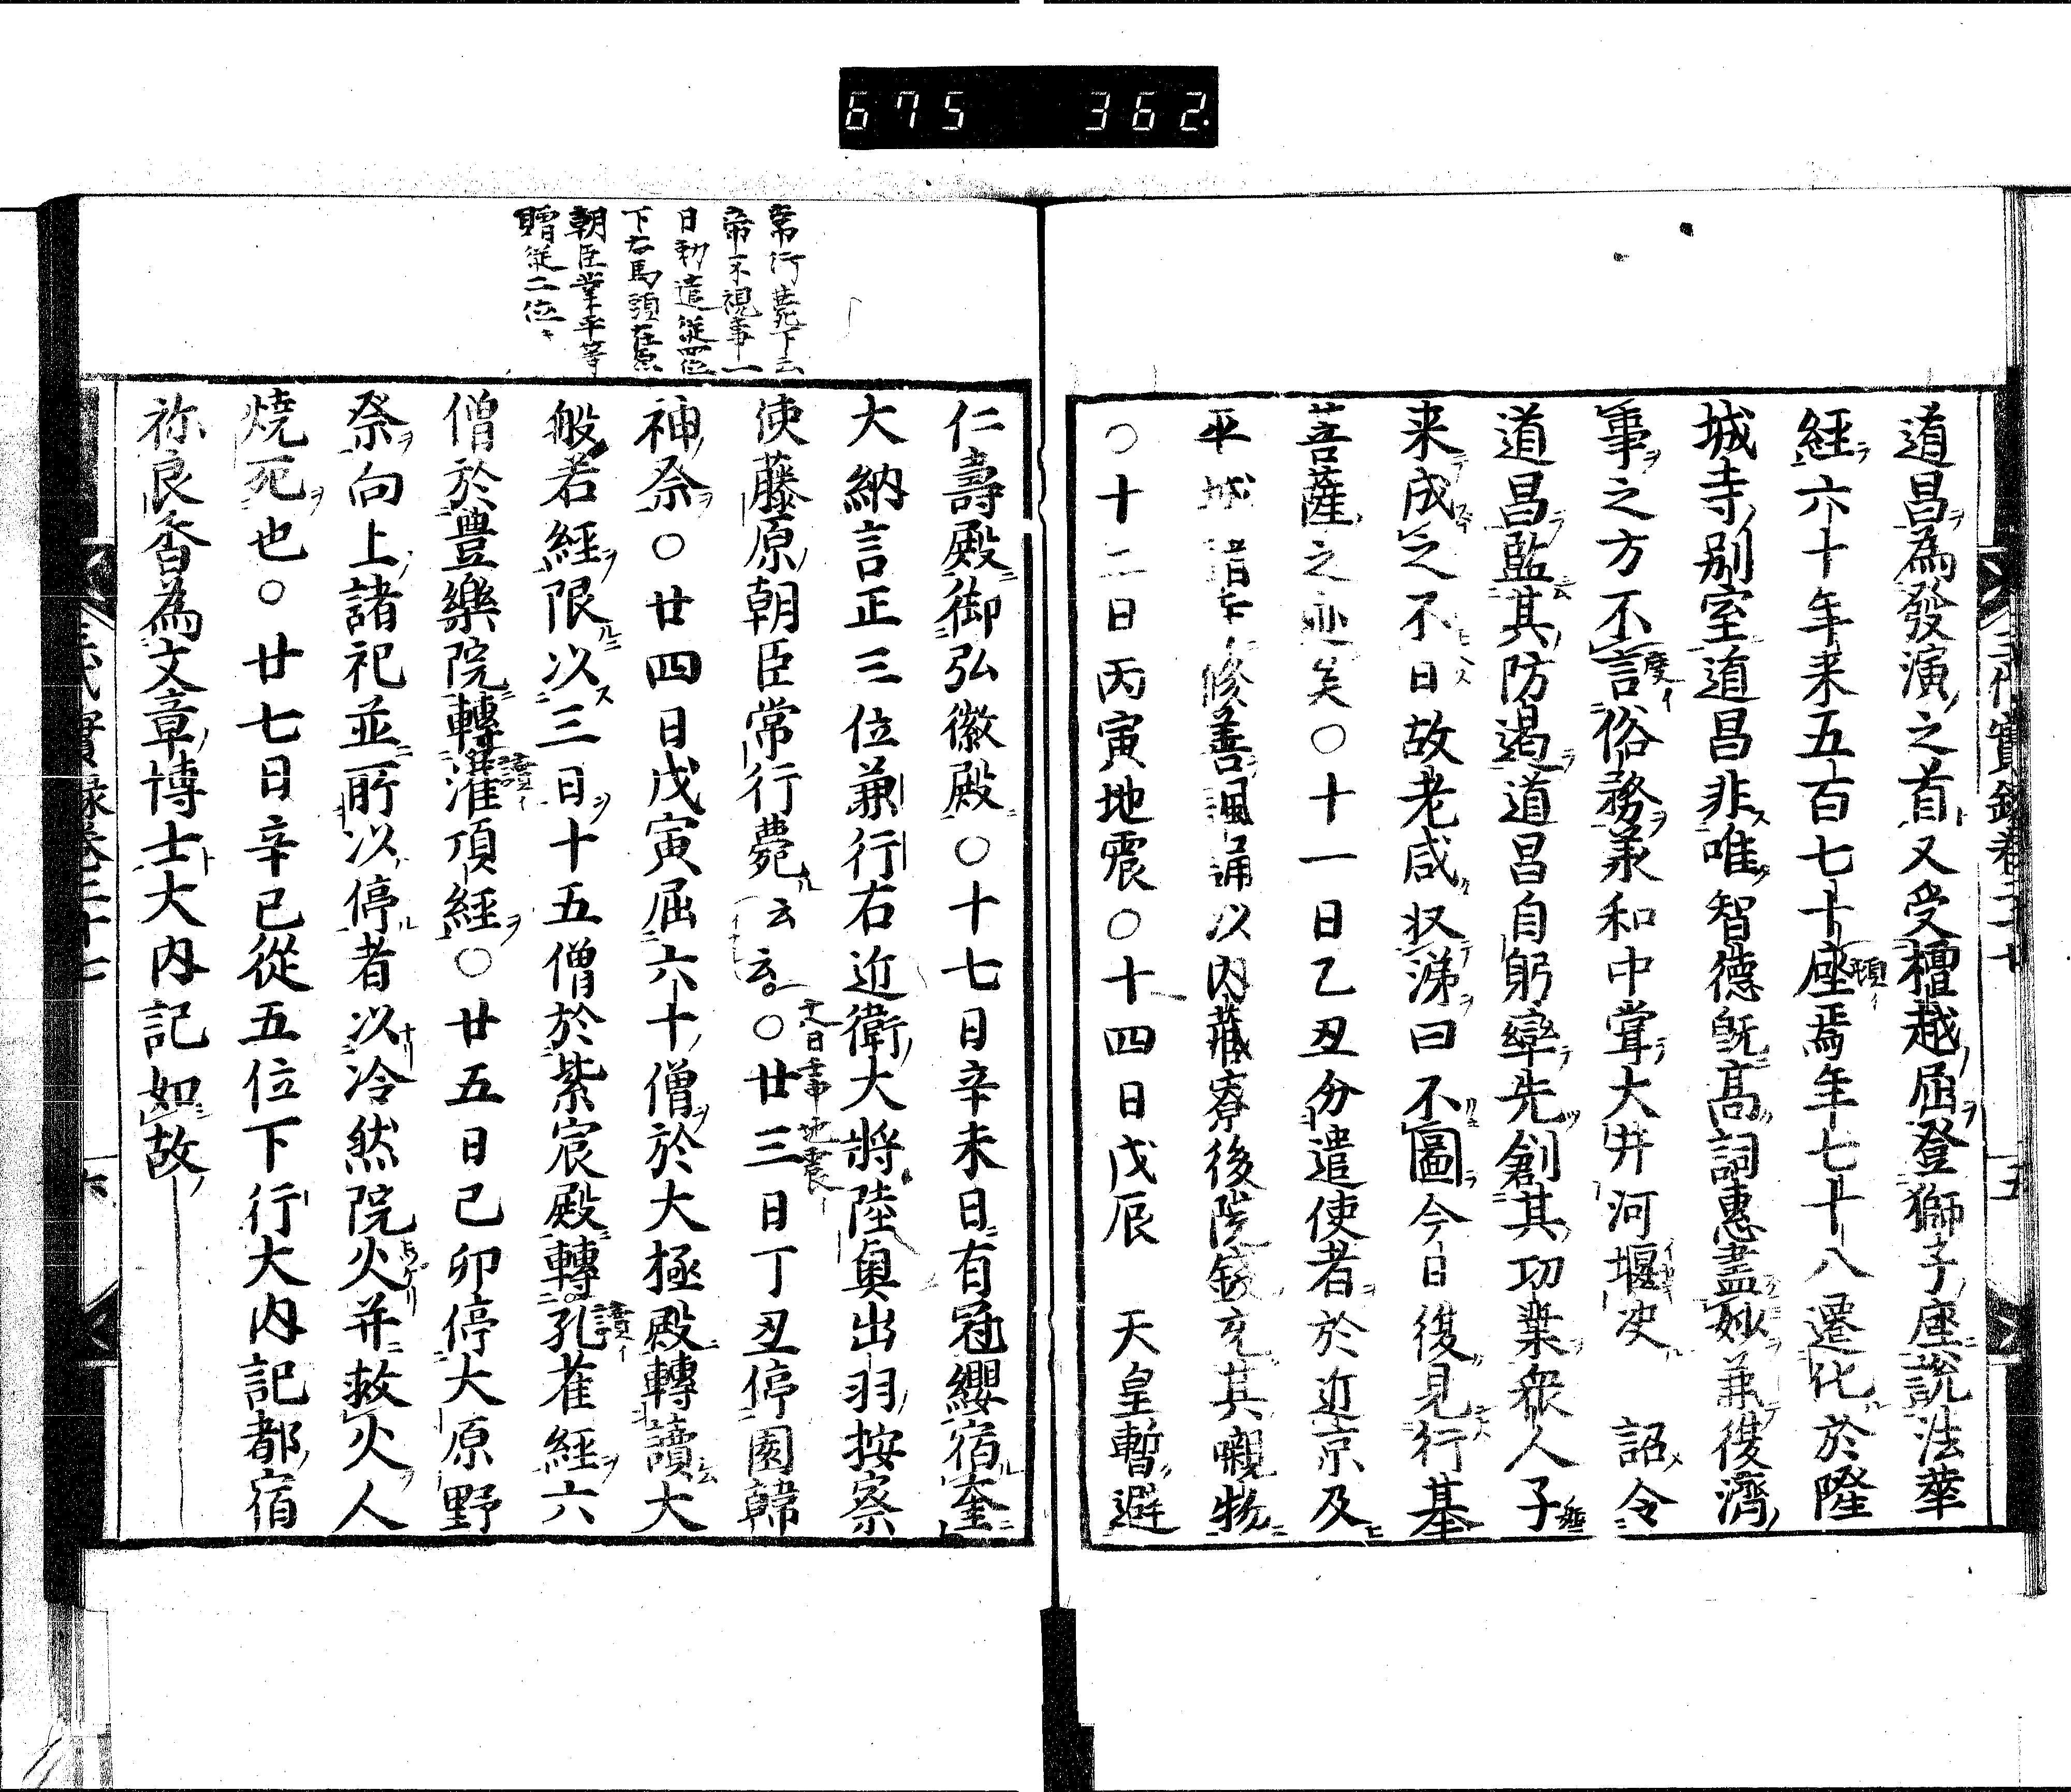 675 362
道昌為發演之首又受檀越屈登獅子座說法華
經六十年来五百七十座焉年七十八遷化於隆
城寺別室道昌非唯智德旣高詞惠盡妙兼復濟
事之方不言俗務承和中嘗大井河堰决 詔令
道昌監其防遏道昌自躬率先創其功業衆人子
来成之不日故老咸収涕曰不圖今日復見行基
菩薩之迹矣○十一日乙丑分遣使者於近京及
平城諸寺修善諷誦以内藏寮後院錢充其嚫物
○十二日丙寅地震○十四日戊辰 天皇暫避
常行薨下云
帝不視事一
日勅遣從四位
下右馬頭在原
朝臣業平等
贈從二位
仁壽殿御弘徽殿○十七日辛未日有冠纓宿奎
大納言正三位兼行右近衛大將陸奥出羽按察
使藤原朝臣常行薨云云○廿三日丁丑停園韓
神祭○廿四日戊寅屈六十僧於大極殿轉讀大
般若經限以三日十五僧於紫宸殿轉孔雀經六
僧於豊樂院轉灌頂經○廿五日己卯停大原野
祭向上諸祀並所以停者以冷然院火并救火人
焼死也○廿七日辛巳從五位下行大内記都宿
祢良香為文章博士大内記如故